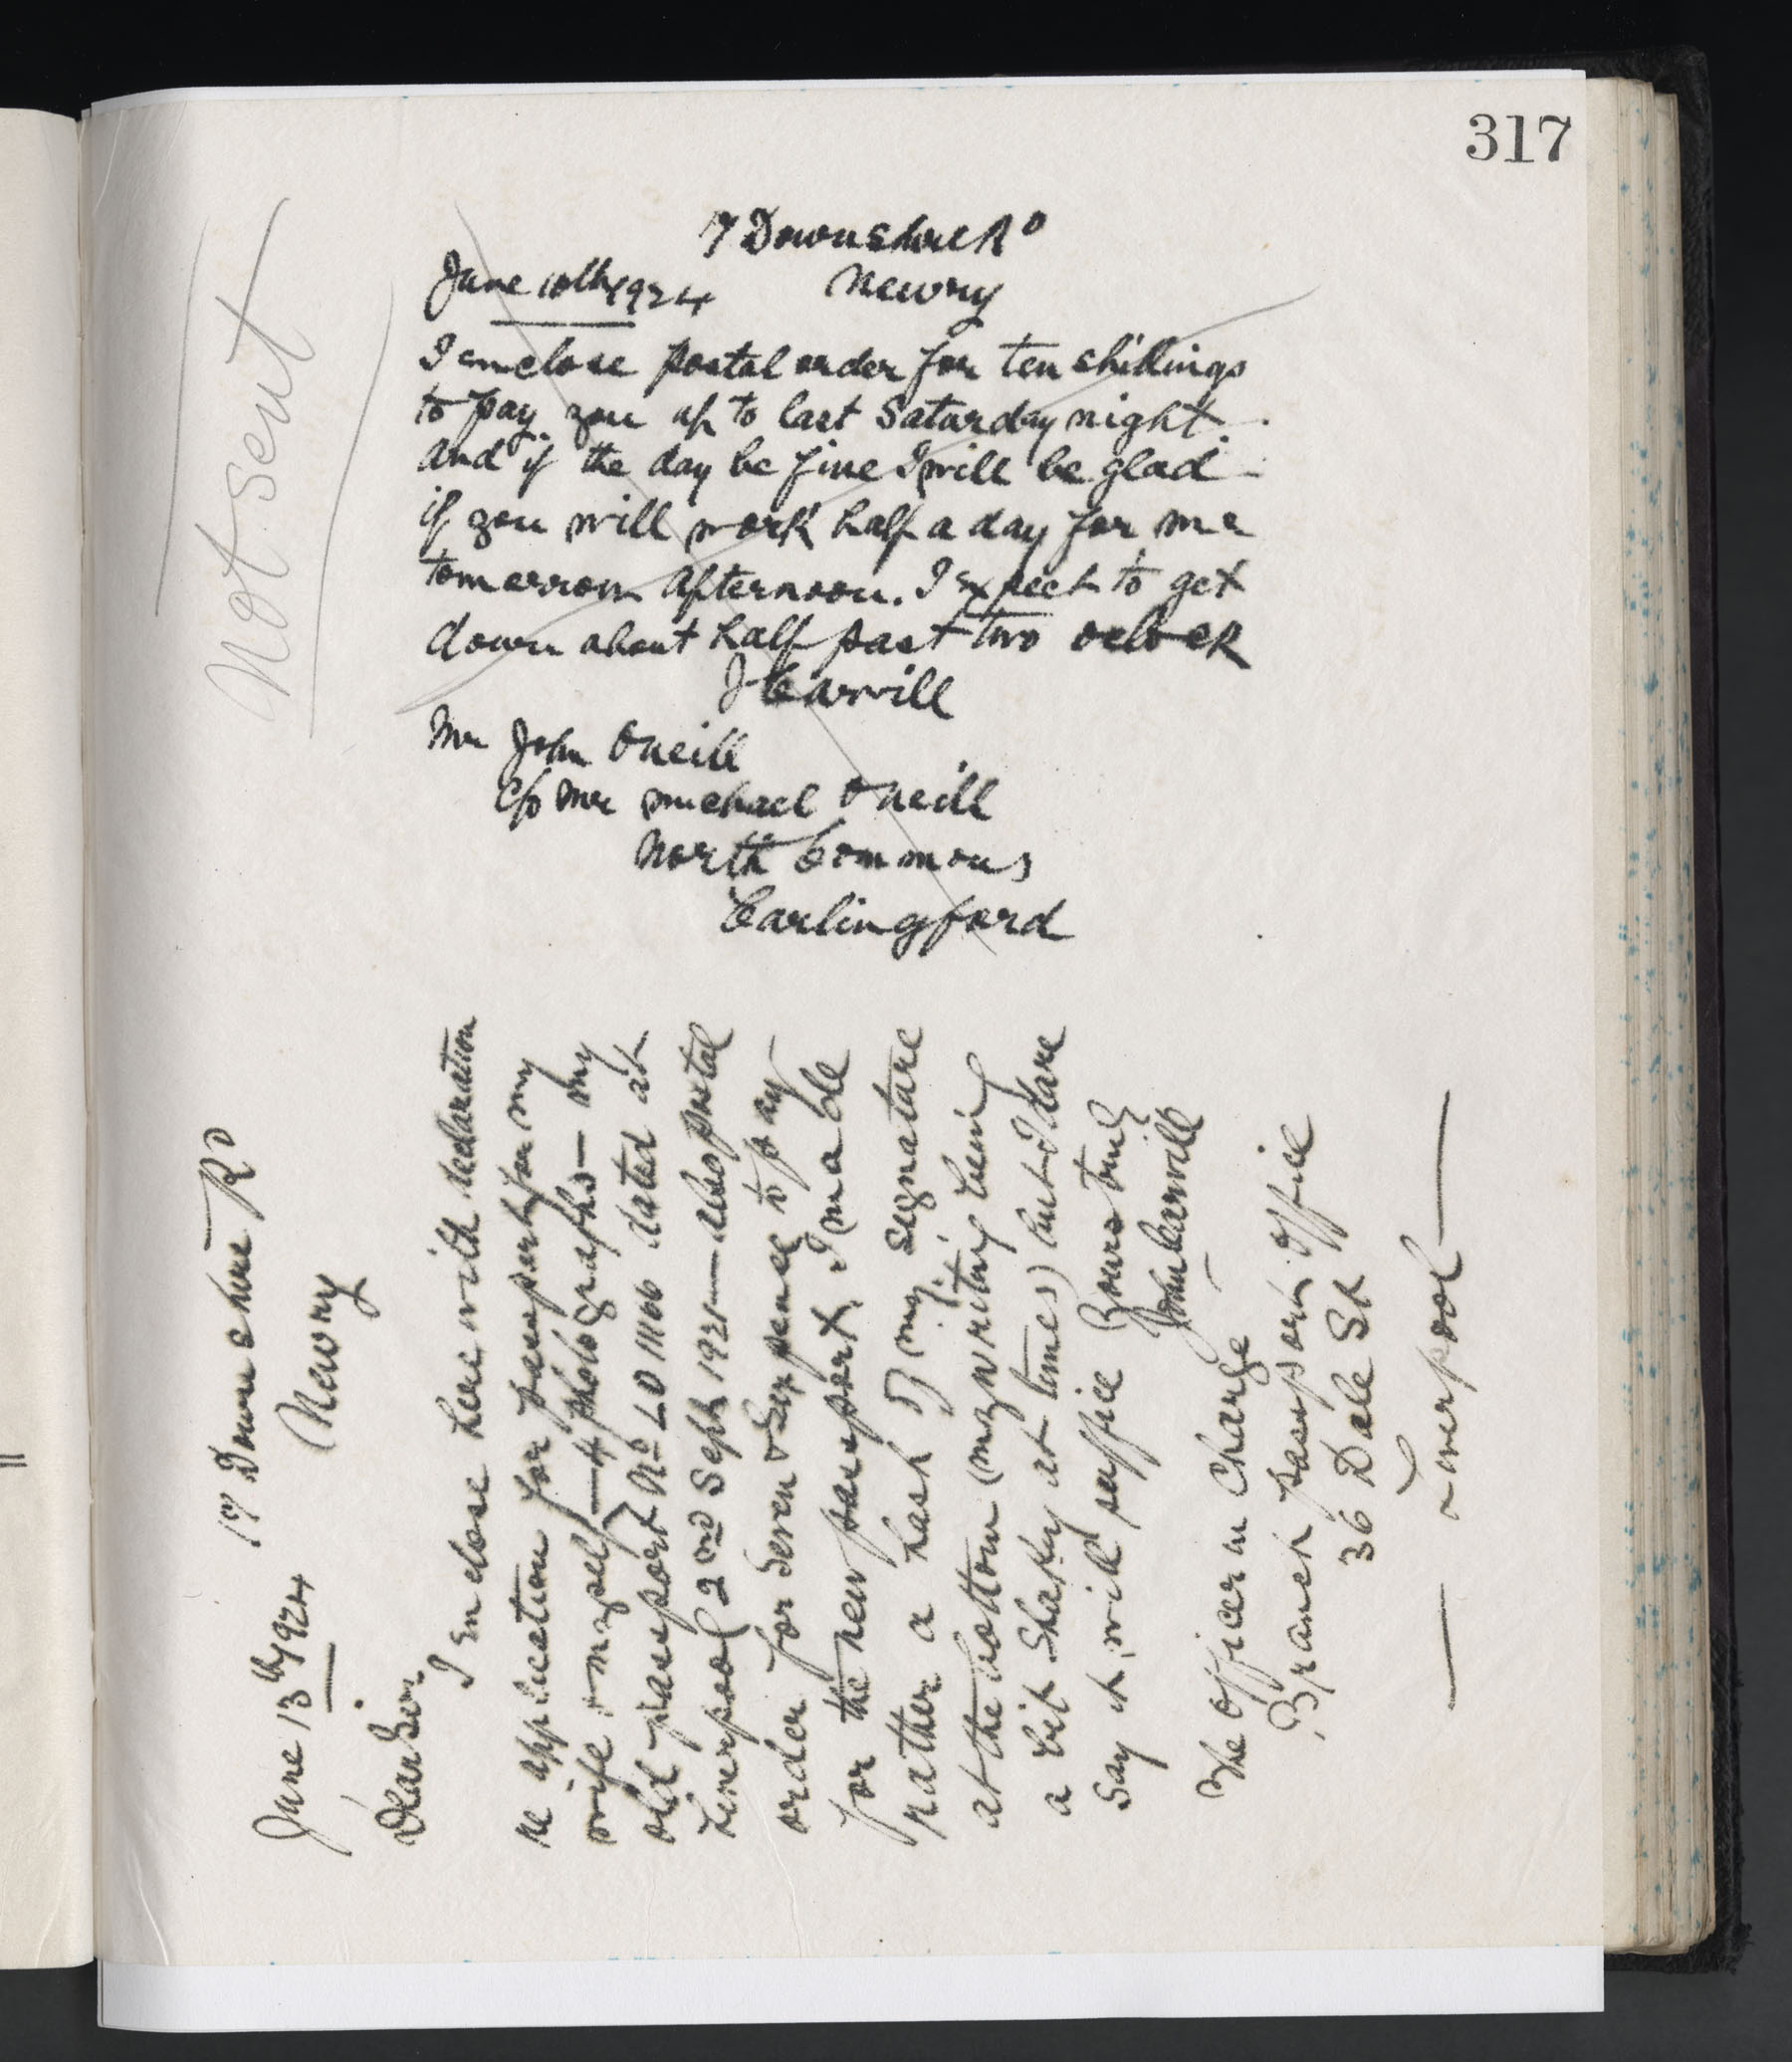 317
Not sent
17 Downshire Rd
June 10th 1924 Newry
I enclose postal order for ten shillings
to pay you up to last Saturday night
and if the day be fine I will be glad
if you will work half a day for me
tomorrow afternoon. I expect to get
down about half past two oclock
J Carvill
Mr John ONeill
C/o Mr Michael ONeill
North Commons
Carlingford
17 Downshire Rd
June 13th 1924 Newry
Dear Sir
I enclose herewith declaration
re application for passport for my
wife & myself — 4 photographs — my
old passport No LO 11166 dated at
Liverpool 2nd Sept 1921 — also postal
order for seven & sixpence to pay
for the new passport, I made
rather a hash of my signature
at the bottom (my writing being
a bit shaky at times) but I dare
say it will suffice Yours truly
John Carvill
The Officer in Charge
Branch Passport Office
36 Dale St
Liverpool